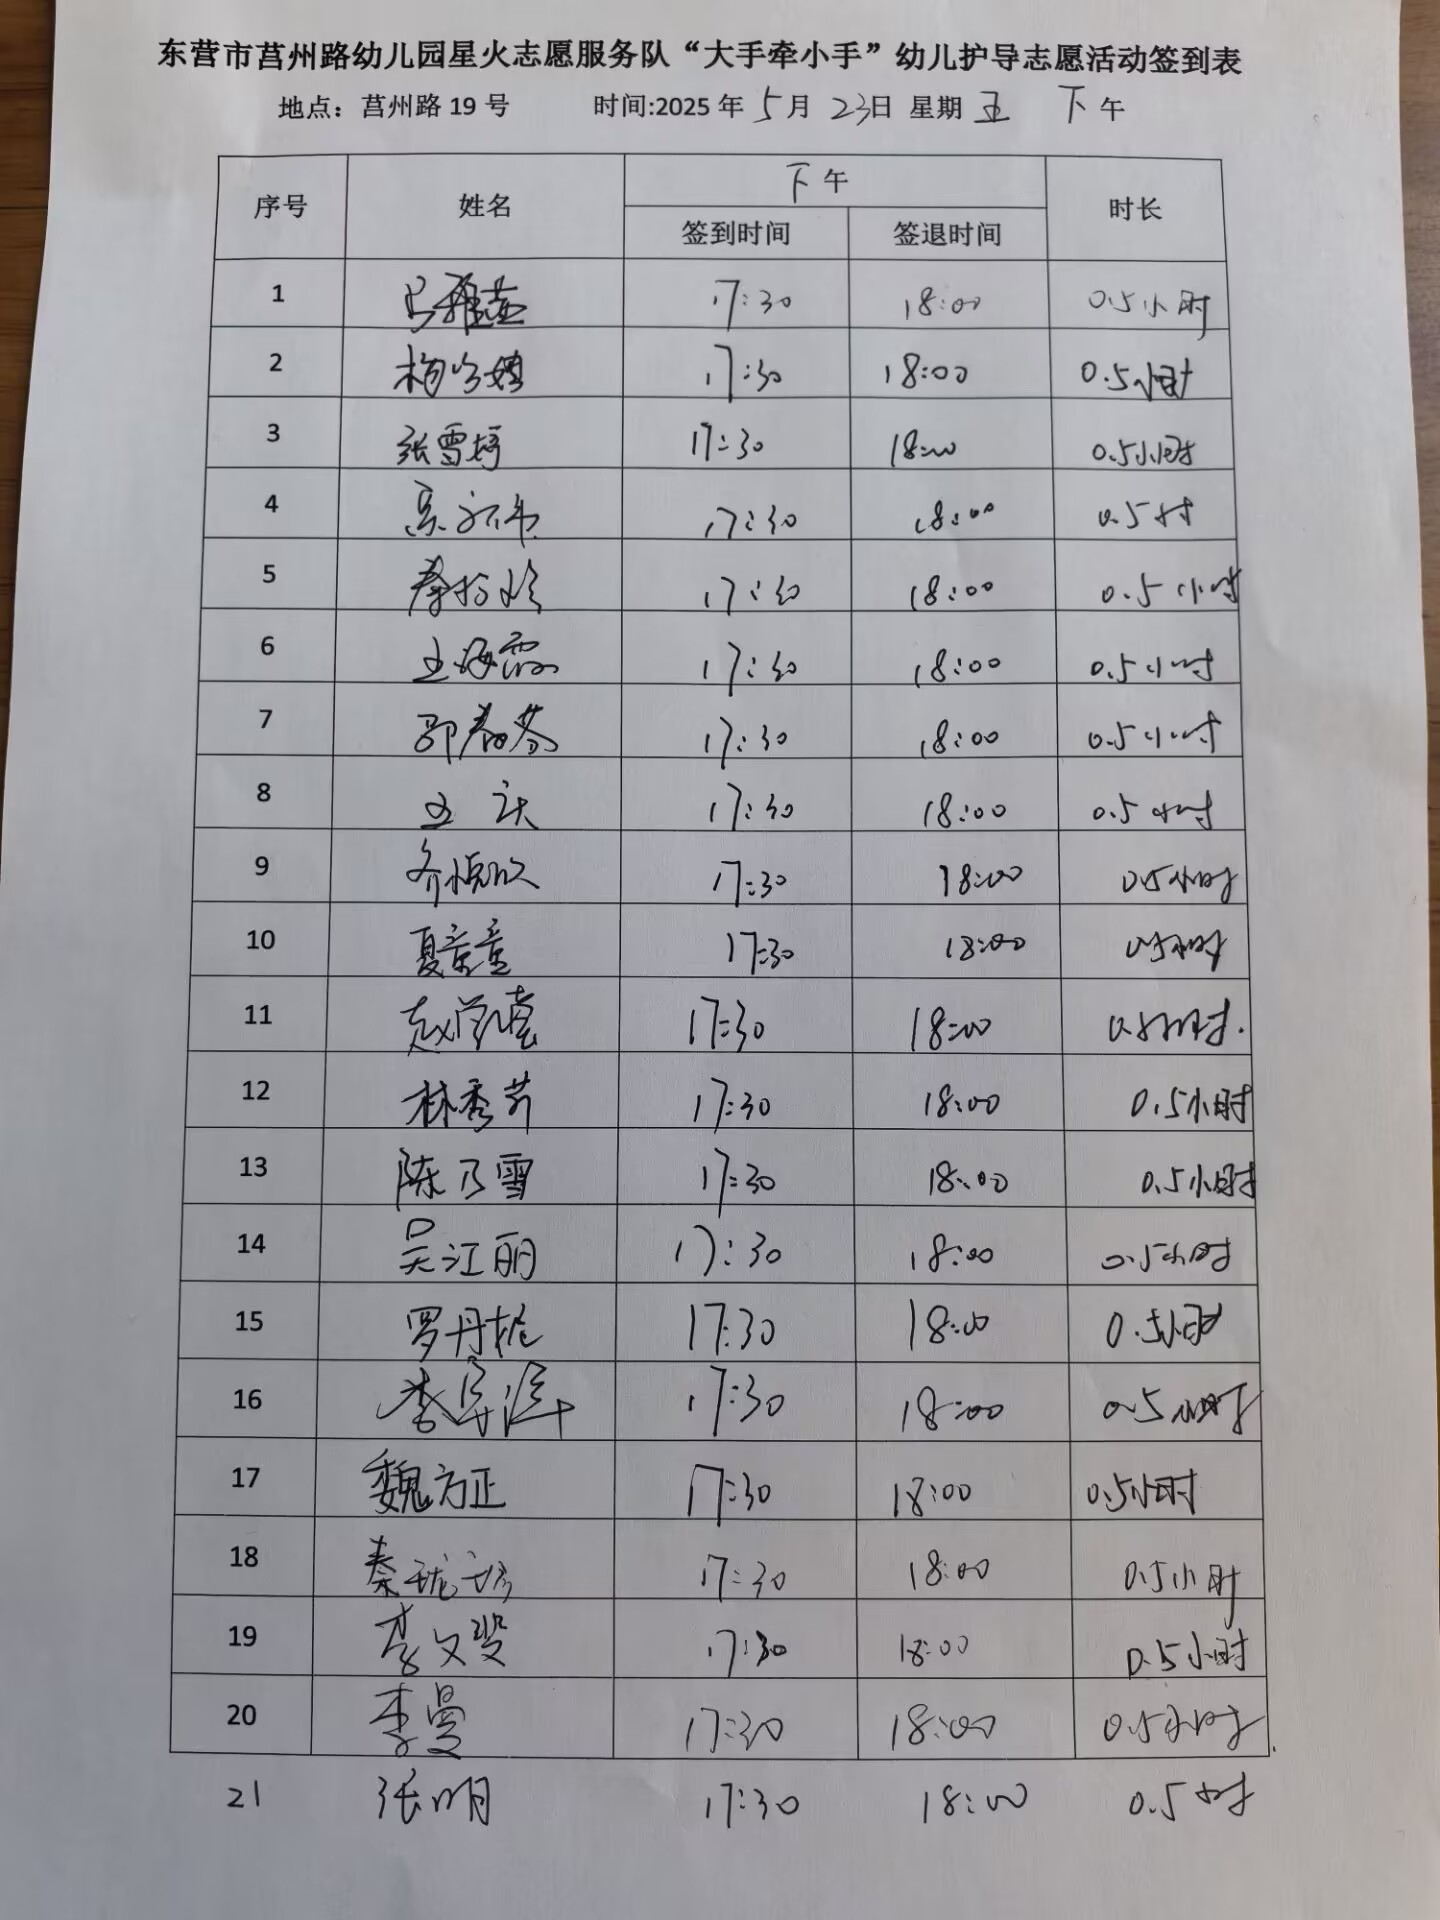 东营市莒州路幼儿园星火志愿服务队“大手牵小手”幼儿护导志愿活动签到表
地点：莒州路 19 号 时间:2025 年 5 月 23日 星期 五 下 午
序号 姓名 下 午 时长
签到时间 签退时间
1 17:30 18:00 0.5小时
2 17:30 18:00 0.5小时
3 张雪婷 17:30 18:00 0.5小时
4 17:30 18:00 0.5小时
5 17:30 18:00 0.5小时
6 王海霞 17:30 18:00 0.5小时
7 郭春芬 17:30 18:00 0.5小时
8 17:30 18:00 0.5小时
9 17:30 18:00 0.5小时
10 夏童童 17:30 18:00 0.5小时
11 17:30 18:00 0.5小时.
12 林秀芹 17:30 18:00 0.5小时
13 陈乃雪 17:30 18:00 0.5小时
14 吴江丽 17:30 18:00 0.5小时
15 罗丹妮 17:30 18:00 0.5小时
16 17:30 18:00 0.5小时
17 魏方正 17:30 18:00 0.5小时
18 17:30 18:00 0.5小时
19 李文斐 17:30 18:00 0.5小时
20 李曼 17:30 18:00 0.5小时
21 张明 17:30 18:00 0.5小时